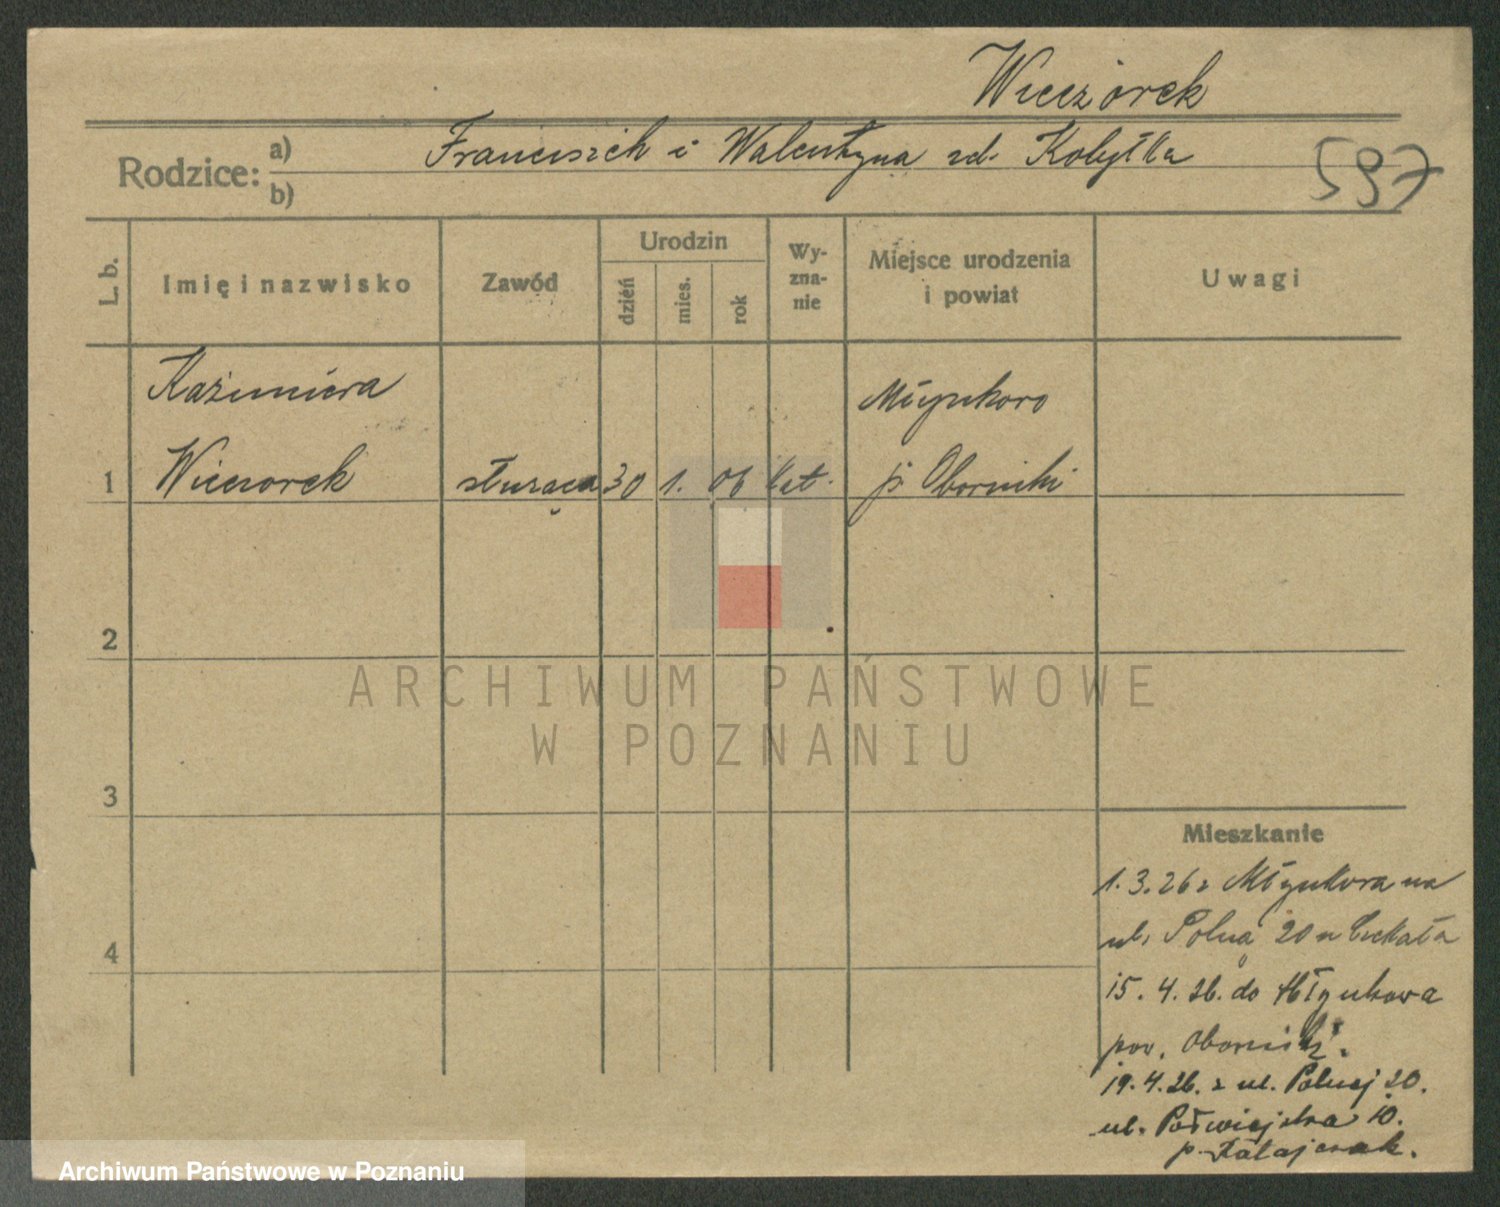 Wieczorek
Rodzice: a) Franciszek i Walentyna zd. Kobyłka
b)
597
L. b.
Imię i nazwisko
Zawód
Urodzin
dzień
mies.
rok
Wy-
zna-
nie
Miejsce urodzenia
i powiat
Uwagi
Kazimiera
Młynkowo
1 Wieczorek służąca 30 1. 06 kat. p. Oborniki
2
3
4
ARCHIWUM PAŃSTWOWE
W POZNANIU
Mieszkanie
1.3.26 z Młynkowa na
ul. Polną 20
15.4.26. do Młynkowa
pow. Oborniki.
19.4.26. z ul. Polnej 20.
ul. Półwiejska 10.
p. Ratajczak.
Archiwum Państwowe w Poznaniu